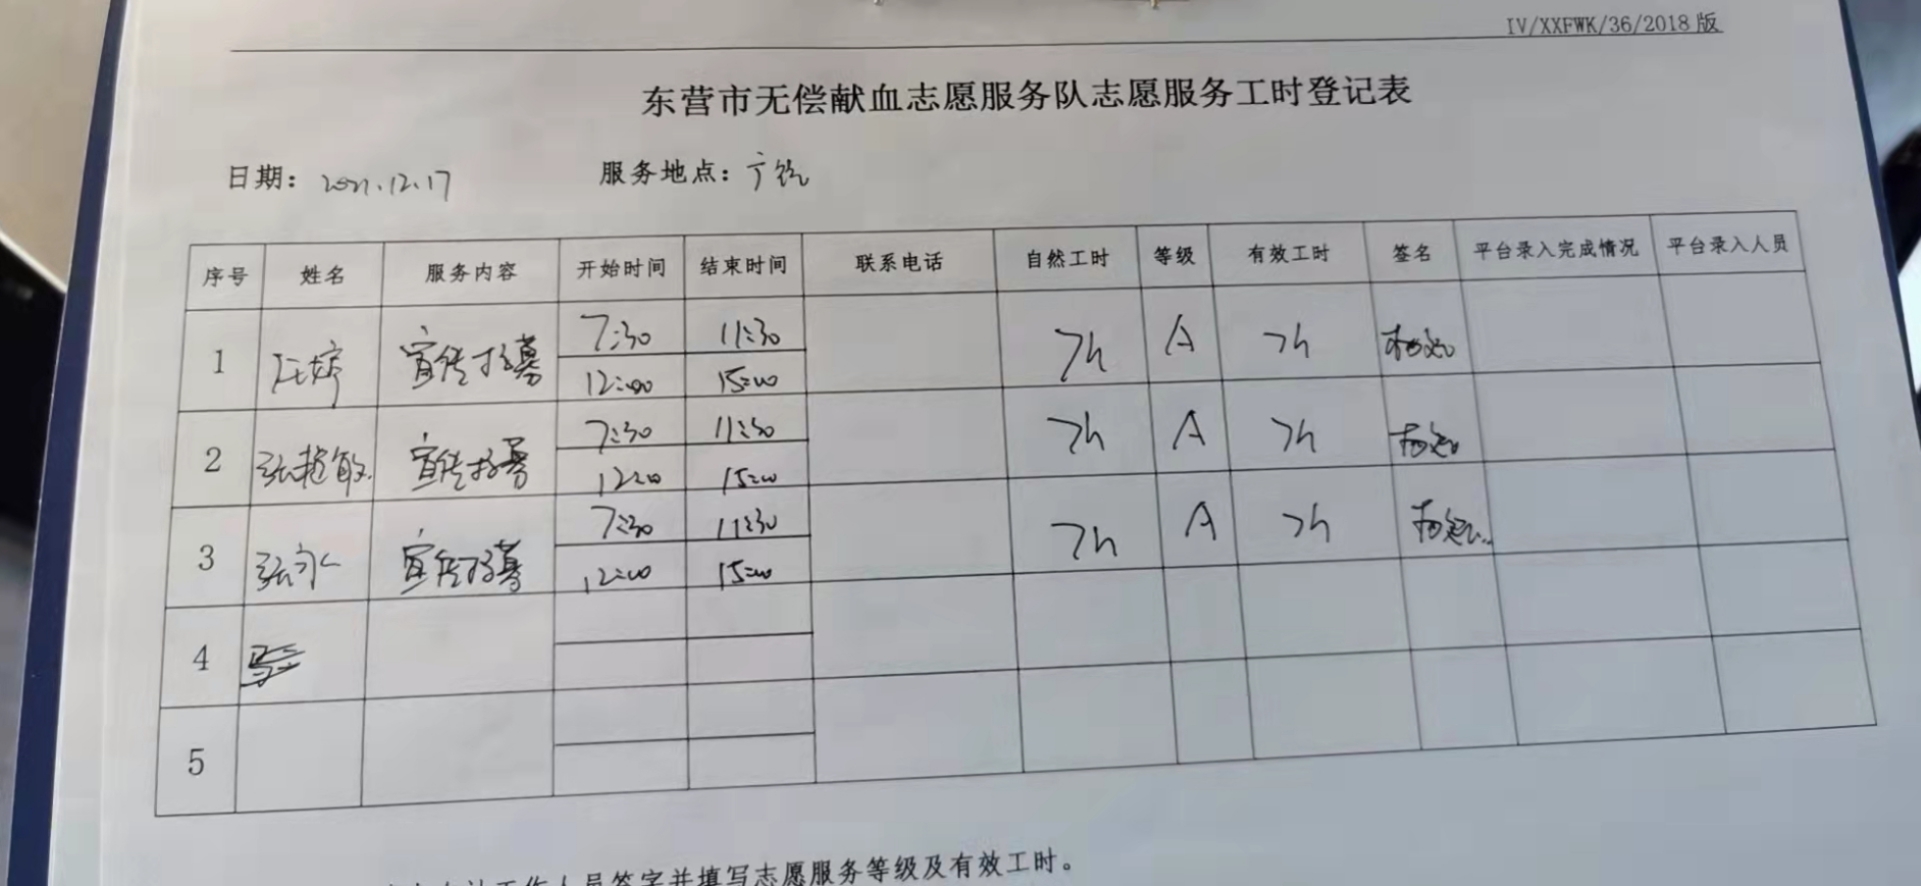 IV/XXFWK/36/2018版
东营市无偿献血志愿服务队志愿服务工时登记表
日期: 2021.12.17 服务地点: 广饶
序号 姓名 服务内容 开始时间 结束时间 联系电话 自然工时 等级 有效工时 签名 平台录入完成情况 平台录入人员
1 宣传招募 7:30 11:30 7h A 7h
12:00 15:00
2 宣传招募 7:30 11:30 7h A 7h
12:00 15:00
3 宣传招募 7:30 11:30 7h A 7h
12:00 15:00
4
5
工作人员签字并填写志愿服务等级及有效工时。